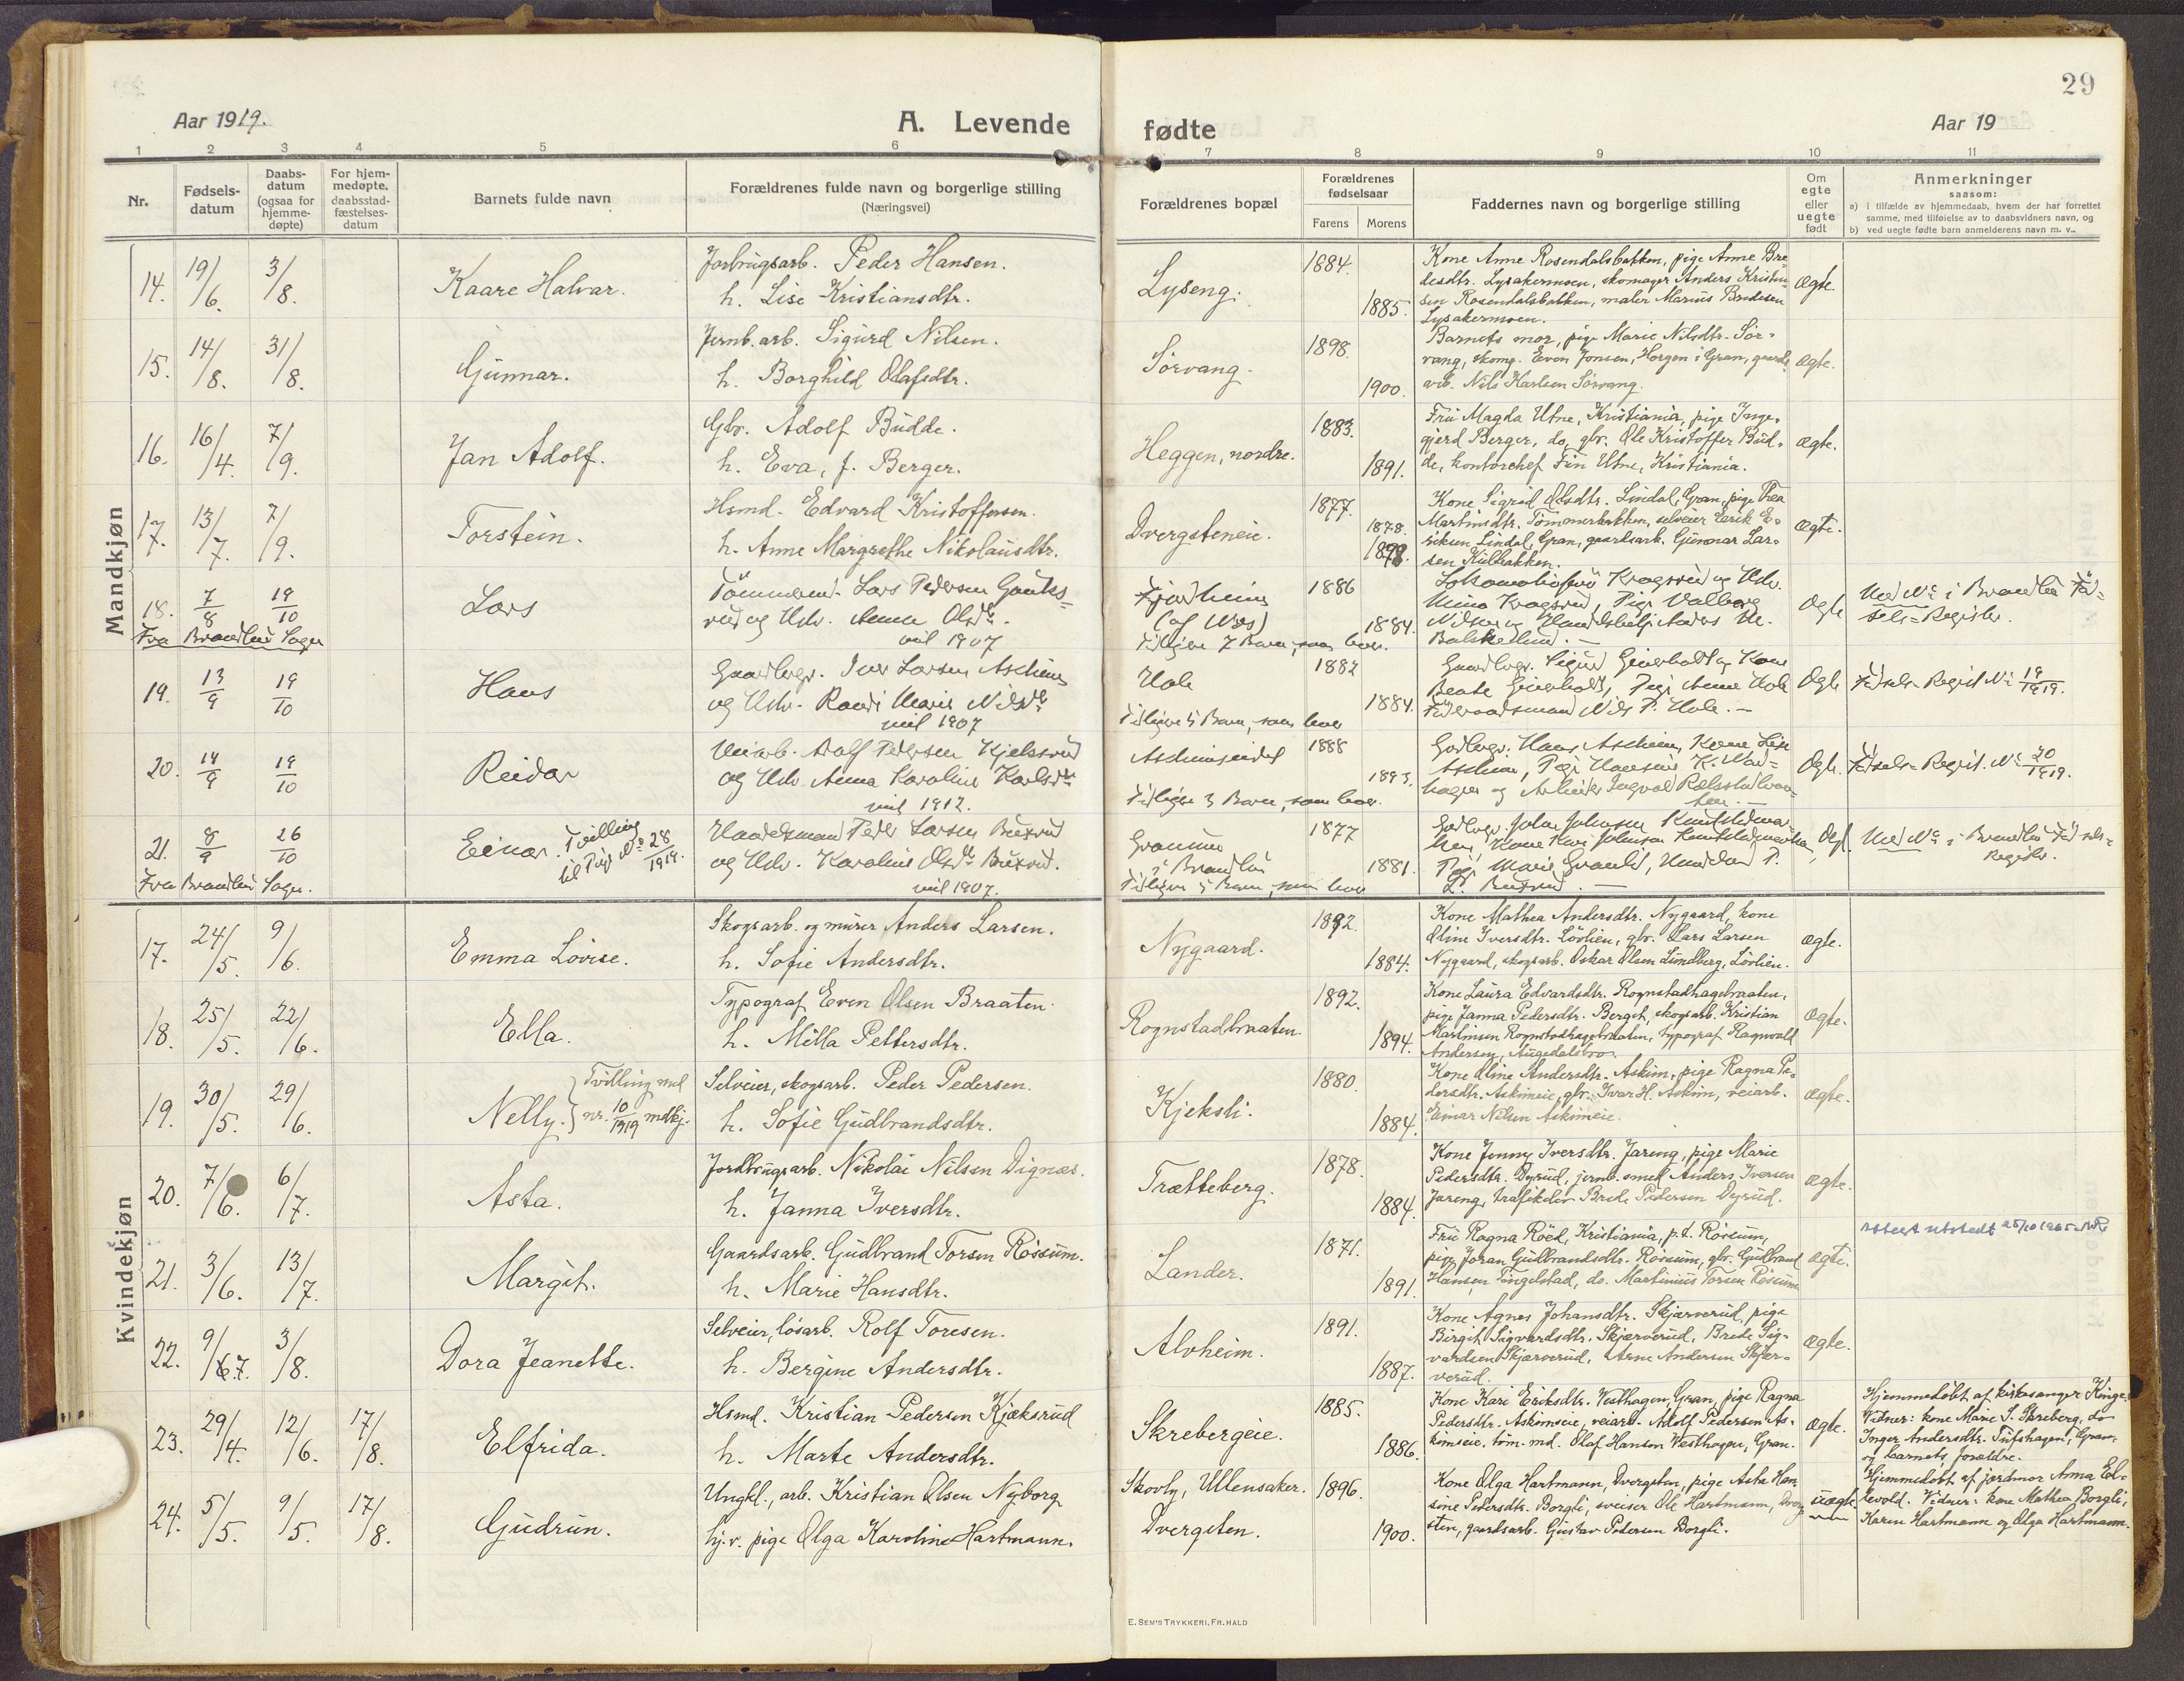 29
Aar 1919.
A. Levende fødte
Aar 19
1 2 3 4 5 6 7 8 9 10 11
Nr.
Fødsels-datum
Daabs-datum (ogsaa for hjemme-døpte)
For hjem-medøpte, daabsstad-fæstelses-datum
Barnets fulde navn
Forældrenes fulde navn og borgerlige stilling
(Næringsvei)
Forældrenes bopæl
Forældrenes fødselsaar
Farens Morens
Faddernes navn og borgerlige stilling
Om egte eller uegte født
Anmerkninger
saasom:
a) i tilfælde av hjemmedaab, hvem der har forrettet
samme, med tilføielse av to daabsvidners navn, og
b) ved uegte fødte barn anmelderens navn m. v..
Mandkjøn
14. 19/6. 3/8. Kaare Halvar.
Jorbrugsarb. Peder Hansen.
h. Lise Kristiansdtr.
Lyseng. 1884. 1885.
Kone Anne Rosendalsbakken, pige Anne Bre-
desdtr. Lysakermoen, skomager Anders Kristen-
sen Rosendalsbakken, maler Marius Bredesen
Lysakermoen.
Ægte.
15. 14/8. 31/8. Gunnar.
Jernb. arb. Sigurd Nilsen.
h. Borghild Olafsdtr.
Sørvang. 1898. 1900.
Barnets mor, pige Marie Nilsdtr. Sør-
vang, skomg. Even Jonsen, Horgen i Gran, gaards-
arb. Nils Karlsen Sørvang.
ægte.
16. 16/4. 7/9. Jan Adolf.
Gbr. Adolf Budde.
h. Eva, f. Berger.
Heggen, nordre. 1883. 1891.
Fru Magda Utne, Kristiania, pige Inge-
gjerd Berger, do, gbr. Ole Kristoffer Bud-
de, kontorchef Fin Utne, Kristiania.
ægte.
17. 13/7. 7/9. Torstein.
Hsmd. Edvard Kristoffersen.
h. Anne Margrethe Nikolausdtr.
Dvergsteneie. 1877. 1878.
Kone Sigrid Olsdtr. Lindal, Gran, pige Thea
Martinsdtr. Tømmerbakken, selveier Eerik E-
riksen Lindal, Gran, gaardsarb. Gunnar Lar-
sen Kulbakken.
ægte.
18. 7/8 19/10 Lars
Fra Brandbu Sogn
Tömmermd. Lars Pedersen
og Hstr. Anna Olsdtr.
viet 1907
1886 1884.
Tidligere 7 Barn, som lever.
Ægte
Med No i Brandbu Fød-
sels-Register.
19. 13/9 19/10 Hans
Gaardbrgr. Iver Larsen Ascheim
og Hstr. Randi Marie Nilsdtr
viet 1907
Hole 1882 1884.
Tidligere 5 Barn, som lever
Ægte
Fødsels-Regist. No 19/1919.
20. 14/9 19/10 Reidar
Veiarb. Adolf Pedersen
og Hstr. Anna Karoline Karlsdtr
viet 1912.
Ascheimseiet 1888 1893.
Tidligere 3 Barn, som lever.
Gdbrgr. Hans Ascheim, Kone Lise
Ægte.
Fødsels-Regist. No 20/1919.
21. 8/9 26/10 Einar. Tvilling til Pige No 28/1919.
Fra Brandbu Sogn.
Peder Larsen Buxrud
og Hstr. Karoline Olsdtr Buxrud.
viet 1907.
i Brandbu 1877 1881.
Tidligere 5 Barn, som lever
Ægt.
Med No i Brandbu Fødsels-
Register.
Kvindekjøn
17. 24/5. 9/6. Emma Lovise.
Skogsarb. og murer Anders Larsen.
h. Sofie Andersdtr.
Nygaard. 1892. 1884.
Kone Mathea Andersdtr. Nygaard, kone
Oline Iversdtr. Lövlien, gbr. Lars Larsen
Nygaard, skogsarb. Oskar Olsen Lundberg, Lövlien.
ægte.
18. 25/5. 22/6. Ella.
Typograf Even Olsen Braaten.
h. Milla Pettersdtr.
Rognstadbraaten. 1892. 1894.
Kone Laura Edvardsdtr. Rognstadhagebraaten,
pige Janna Pedersdtr. Berget, skogsarb. Kristian
Martinsen Rognstadhagebraaten, typograf Ragnvald
Andersen, Augedalsbro.
ægte.
19. 30/5. 29/6. Nelly. Tvilling med nr. 10/1919 mdkj.
Selveier, skogsarb. Peder Pedersen.
h. Sofie Gudbrandsdtr.
Kjeksli. 1880. 1884.
Kone Oline Andersdtr. Askim, pige Ragna Pe-
dersdtr. Askimeie, gbr. Ivar H. Askim, veiarb.
Einar Nilsen Askimeie.
ægte.
20. 7/6. 6/7. Asta.
Jordbrugsarb. Nikolai Nilsen Dignæs.
h. Janna Iversdtr.
Trætteberg. 1878. 1884.
Kone Jenny Iversdtr. Jareng, pige Marie
Pedersdtr. Dyrud, jernb. smed Anders Iversen
Jareng, trafikelev Brede Pedersen Dyrud.
ægte.
21. 3/6. 13/7. Margit.
Gaardsarb. Gudbrand Torsen Røssum.
h. Marie Hansdtr.
Lander. 1871. 1891.
Fru Ragna Röed, Kristiania, p.t. Røssum,
pige Joran Gudbrandsdtr. Røssum, gbr. Gudbrand
Hansen Tingelstad, do. Martinius Torsen Røssum.
ægte.
Attest utstedt 25/10 1965
22. 9/7. 3/8. Dora Jeanette.
Selveier, løsarb. Rolf Toresen.
h. Bergine Andersdtr.
Alvheim. 1891. 1887.
Kone Agnes Johansdtr. Skjærverud, pige
Birgit Sigvardsdtr. Skjærverud, Brede Sig-
vardsen Skjærverud, Arne Andersen Skjær-
verud.
ægte.
23. 29/4. 12/6. 17/8. Elfrida.
Hsmd. Kristian Pedersen Kjæksrud
h. Marte Andersdtr.
Skrebergeie. 1885. 1886.
Kone Kari Eriksdtr. Vesthagen, Gran, pige Ragna
Pedersdtr. Askimseie, veiarb. Adolf Pedersen As-
kimseie, tøm.md. Olaf Hansen Vesthagen, Gran.
ægte.
Hjemmedöbt af kirkesanger Kinge.
Vidner: kone Marie S. Skreberg, do
Inger Andersdtr. Tufshagen, Gran,
og barnets forældre.
24. 5/5. 9/5. 17/8. Gudrun.
Ungkl., arb. Kristian Olsen Nyborg
hj.v. pige Olga Karoline Hartmann.
Skovly, Ullensaker. Dvergsten. 1896. 1900.
Kone Olga Hartmann, Dvergsten, pige Asta Han-
sine Pedersdtr. Borgli, sveiser Ole Hartmann, Dverg-
sten, gaardsarb. Gustav Pedersen Borgli.
uægte
Hjemmedöbt af jordmor Anna Ed-
levold. Vidner: kone Mathea Borgli,
Karen Hartmann og Olga Hartmann.
E. SEM'S TRYKKERI, FR.HALD